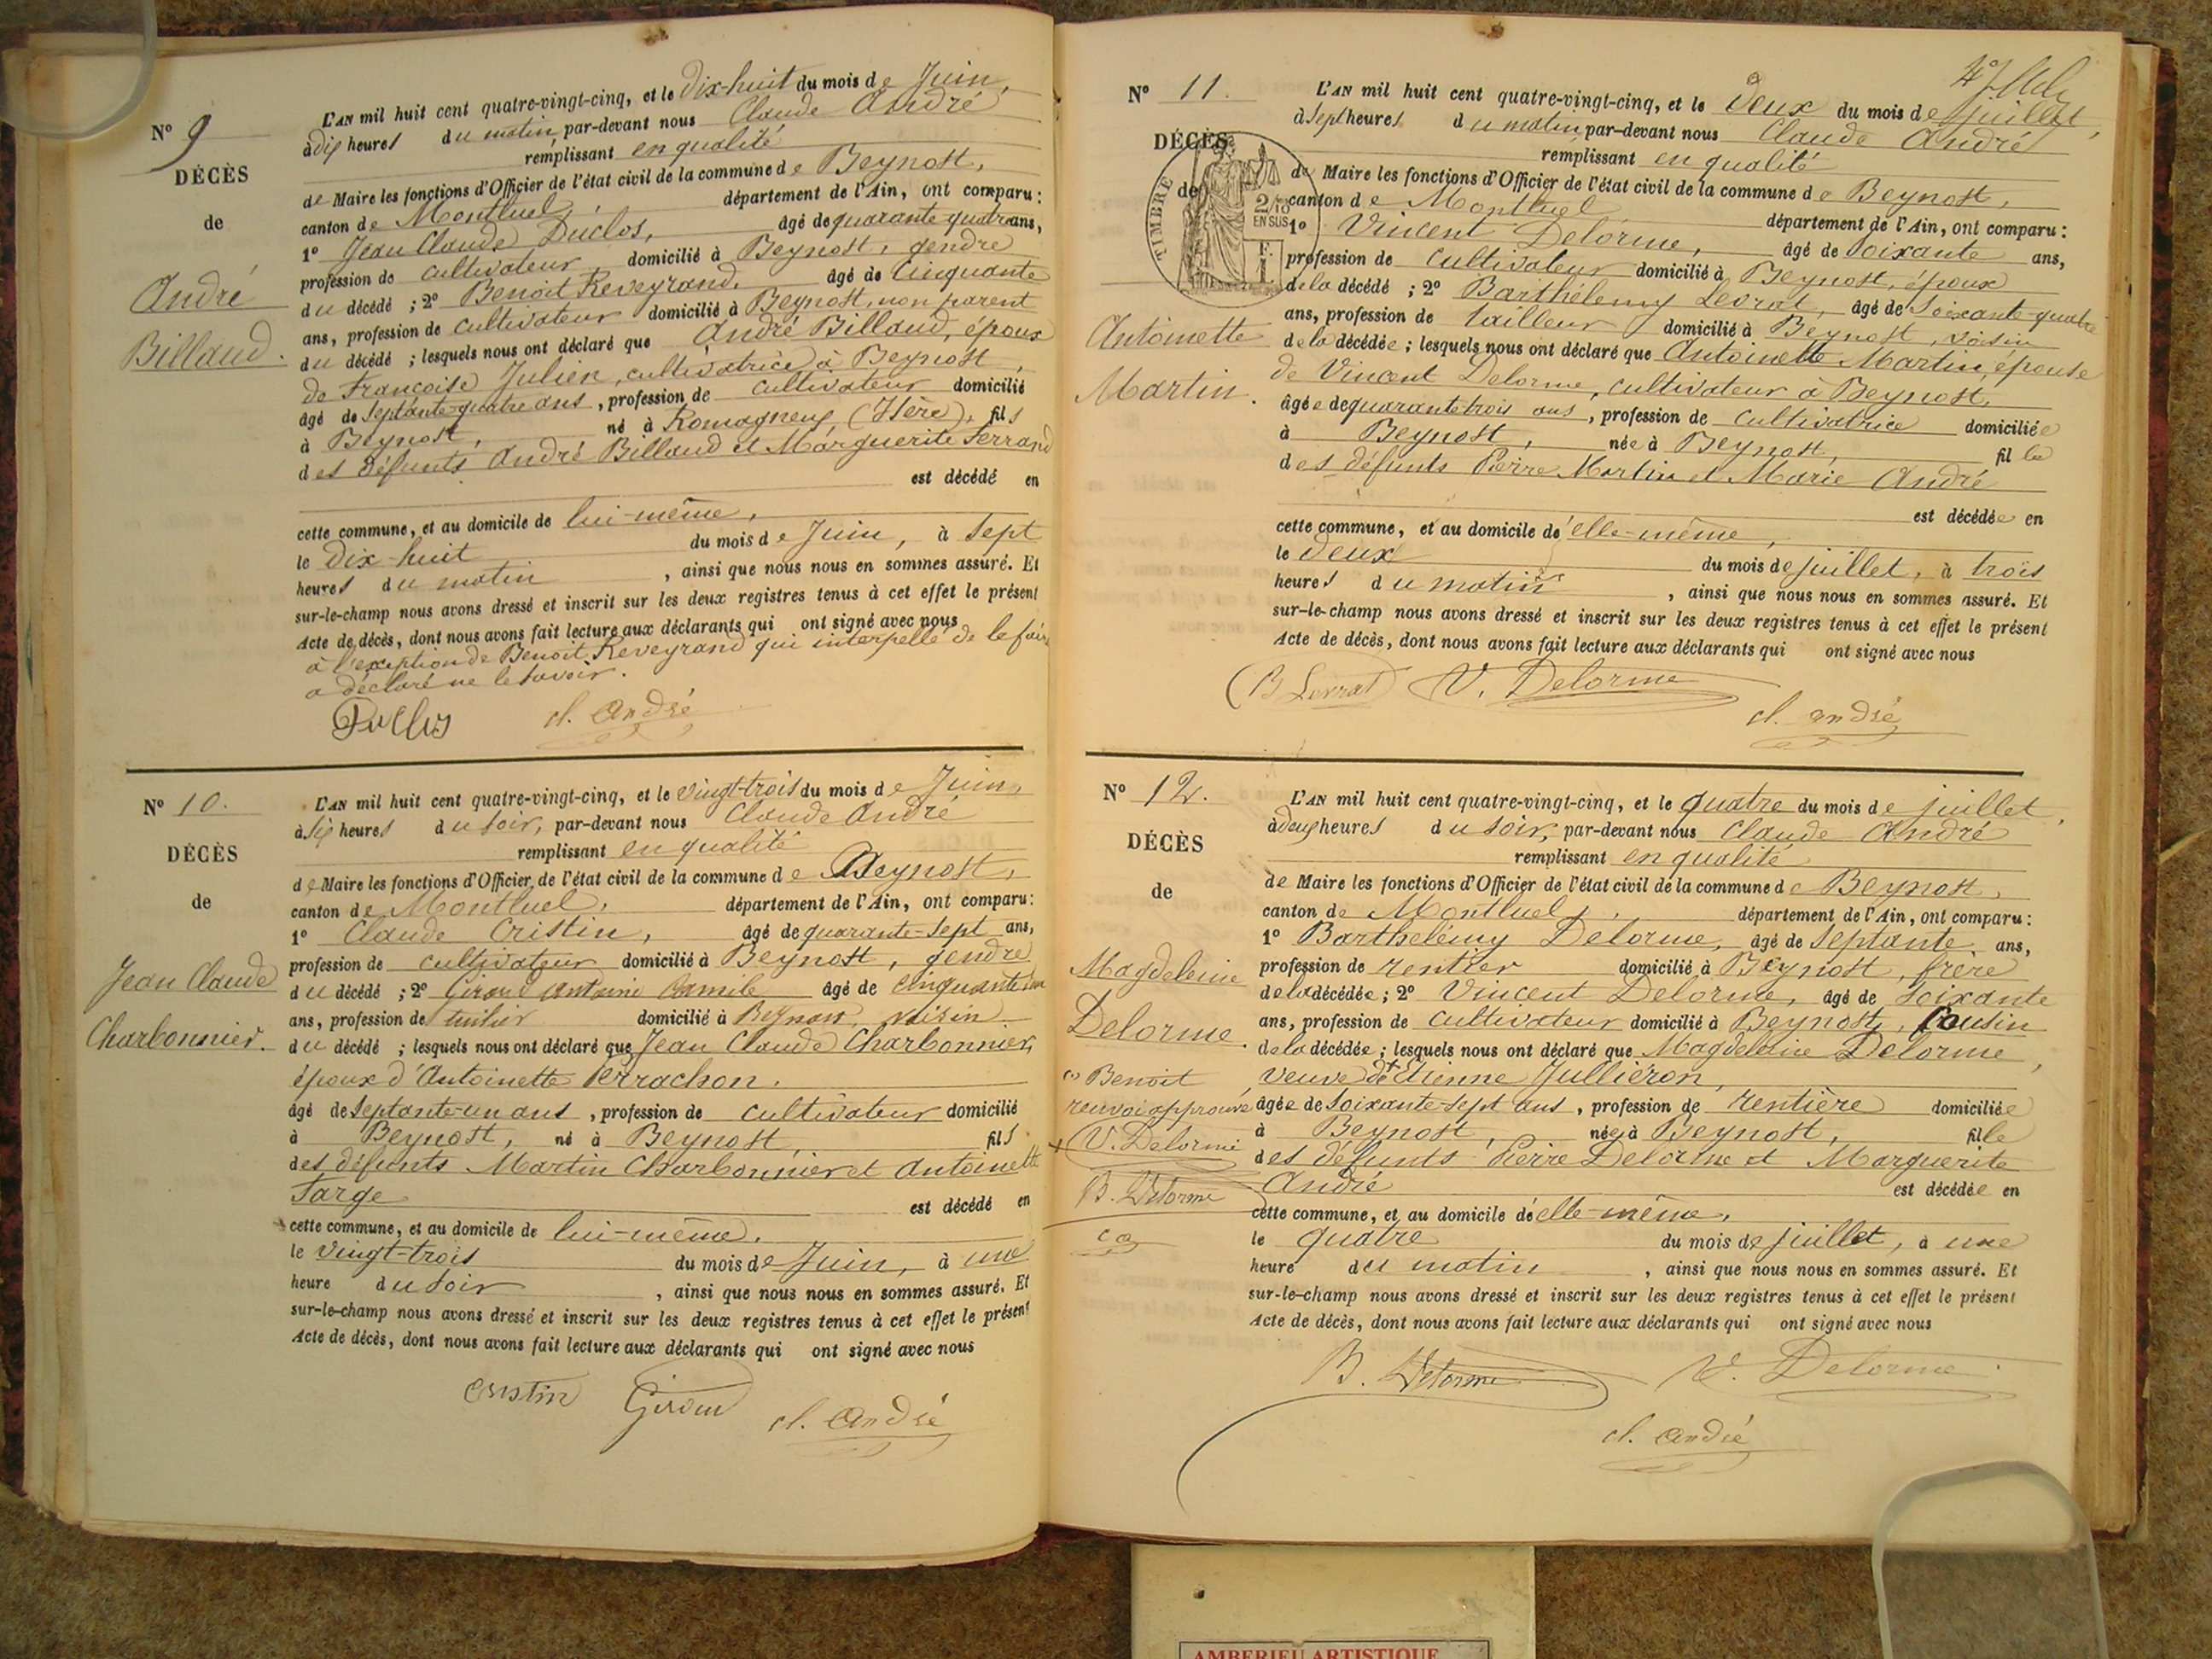 N° 9
DÉCÈS
de
André
Billaud.
L'AN mil huit cent quatre-vingt-cinq, et le Dix-huit du mois de Juin,
à dix heures du matin, par-devant nous Claude André
remplissant en qualité
de Maire les fonctions d'Officier de l'état civil de la commune de Beynost,
canton de Montluel, département de l'Ain, ont comparu :
1° Jean Claude Duclos, âgé de quarante-quatre ans,
profession de cultivateur domicilié à Beynost, gendre
du décédé ; 2° Benoit Reveyrand, âgé de Cinquante
ans, profession de cultivateur domicilié à Beynost, non parent
du décédé ; lesquels nous ont déclaré que André Billaud, époux
de Françoise Julien, cultivatrice à Beynost,
âgé de Septante-quatre ans, profession de cultivateur domicilié
à Beynost, né à Romagneux (Isère), fils
des défunts André Billaud et Marguerite Ferrand
est décédé en
cette commune, et au domicile de lui-même,
le Dix-huit du mois de Juin, à Sept
heures du matin, ainsi que nous nous en sommes assuré. Et
sur-le-champ nous avons dressé et inscrit sur les deux registres tenus à cet effet le présent
Acte de décès, dont nous avons fait lecture aux déclarants qui ont signé avec nous
à l'exception de Benoit Reveyrand qui interpellé de le faire
a déclaré ne le savoir.
Duclos cl. André
N° 10.
DÉCÈS
de
Jean Claude
Charbonnier.
L'AN mil huit cent quatre-vingt-cinq, et le vingt-trois du mois de Juin,
à six heures du soir, par-devant nous Claude André
remplissant en qualité
de Maire les fonctions d'Officier de l'état civil de la commune de Beynost,
canton de Montluel, département de l'Ain, ont comparu :
1° Claude Cristin, âgé de quarante-sept ans,
profession de cultivateur domicilié à Beynost, gendre
du décédé ; 2° Giroud Antoine Camile âgé de cinquante
ans, profession de domicilié à Beynost, voisin
du décédé ; lesquels nous ont déclaré que Jean Claude Charbonnier,
époux d'Antoinette Perrachon.
âgé de Septante-un ans, profession de cultivateur domicilié
à Beynost, né à Beynost, fils
des défunts Martin Charbonnier et Antoinette
Farge est décédé en
cette commune, et au domicile de lui-même,
le vingt-trois du mois de Juin, à une
heure du soir, ainsi que nous nous en sommes assuré. Et
sur-le-champ nous avons dressé et inscrit sur les deux registres tenus à cet effet le présent
Acte de décès, dont nous avons fait lecture aux déclarants qui ont signé avec nous
Cristin Giroud cl. André
N° 11.
DÉCÈS
de
TIMBRE
2/10
EN SUS
Antoinette
Martin.
L'AN mil huit cent quatre-vingt-cinq, et le Deux du mois de juillet,
à Sept heures du matin par-devant nous Claude André
remplissant en qualité
de Maire les fonctions d'Officier de l'état civil de la commune de Beynost,
canton de Montluel département de l'Ain, ont comparu :
1° Vincent Delorme, âgé de Soixante ans,
profession de cultivateur domicilié à Beynost, époux
de la décédé ; 2° Barthélemy Levrat, âgé de Soixante-quatre
ans, profession de tailleur domicilié à Beynost, voisin
de la décédée ; lesquels nous ont déclaré que Antoinette Martin, épouse
de Vincent Delorme, cultivateur à Beynost,
âgée de quarante trois ans, profession de cultivatrice domiciliée
à Beynost, née à Beynost, fille
des défunts Pierre Martin et Marie André
est décédée en
cette commune, et au domicile de elle-même,
le deux du mois de juillet, à trois
heures du matin, ainsi que nous nous en sommes assuré. Et
sur-le-champ nous avons dressé et inscrit sur les deux registres tenus à cet effet le présent
Acte de décès, dont nous avons fait lecture aux déclarants qui ont signé avec nous
B Levrat V. Delorme
cl. André
N° 12.
DÉCÈS
de
Magdeleine
Delorme.
Benoit
renvoi approuvé
V. Delorme
B. Delorme
c a
L'AN mil huit cent quatre-vingt-cinq, et le quatre du mois de juillet,
à deux heures du soir, par-devant nous Claude André
remplissant en qualité
de Maire les fonctions d'Officier de l'état civil de la commune de Beynost,
canton de Montluel, département de l'Ain, ont comparu :
1° Barthelémy Delorme, âgé de Septante ans,
profession de rentier domicilié à Beynost, frère
de la décédée ; 2° Vincent Delorme, âgé de Soixante
ans, profession de cultivateur domicilié à Beynost, Cousin
de la décédée ; lesquels nous ont déclaré que Magdeleine Delorme,
veuve de + Etienne Julliéron,
âgée de Soixante-sept ans, profession de rentière domiciliée
à Beynost, née à Beynost, fille
des défunts Pierre Delorme et Marguerite
André est décédée en
cette commune, et au domicile de elle-même,
le quatre du mois de juillet, à une
heure du matin, ainsi que nous nous en sommes assuré. Et
sur-le-champ nous avons dressé et inscrit sur les deux registres tenus à cet effet le présent
Acte de décès, dont nous avons fait lecture aux déclarants qui ont signé avec nous
B. Delorme V. Delorme
cl. André
AMBERIEU ARTISTIQUE